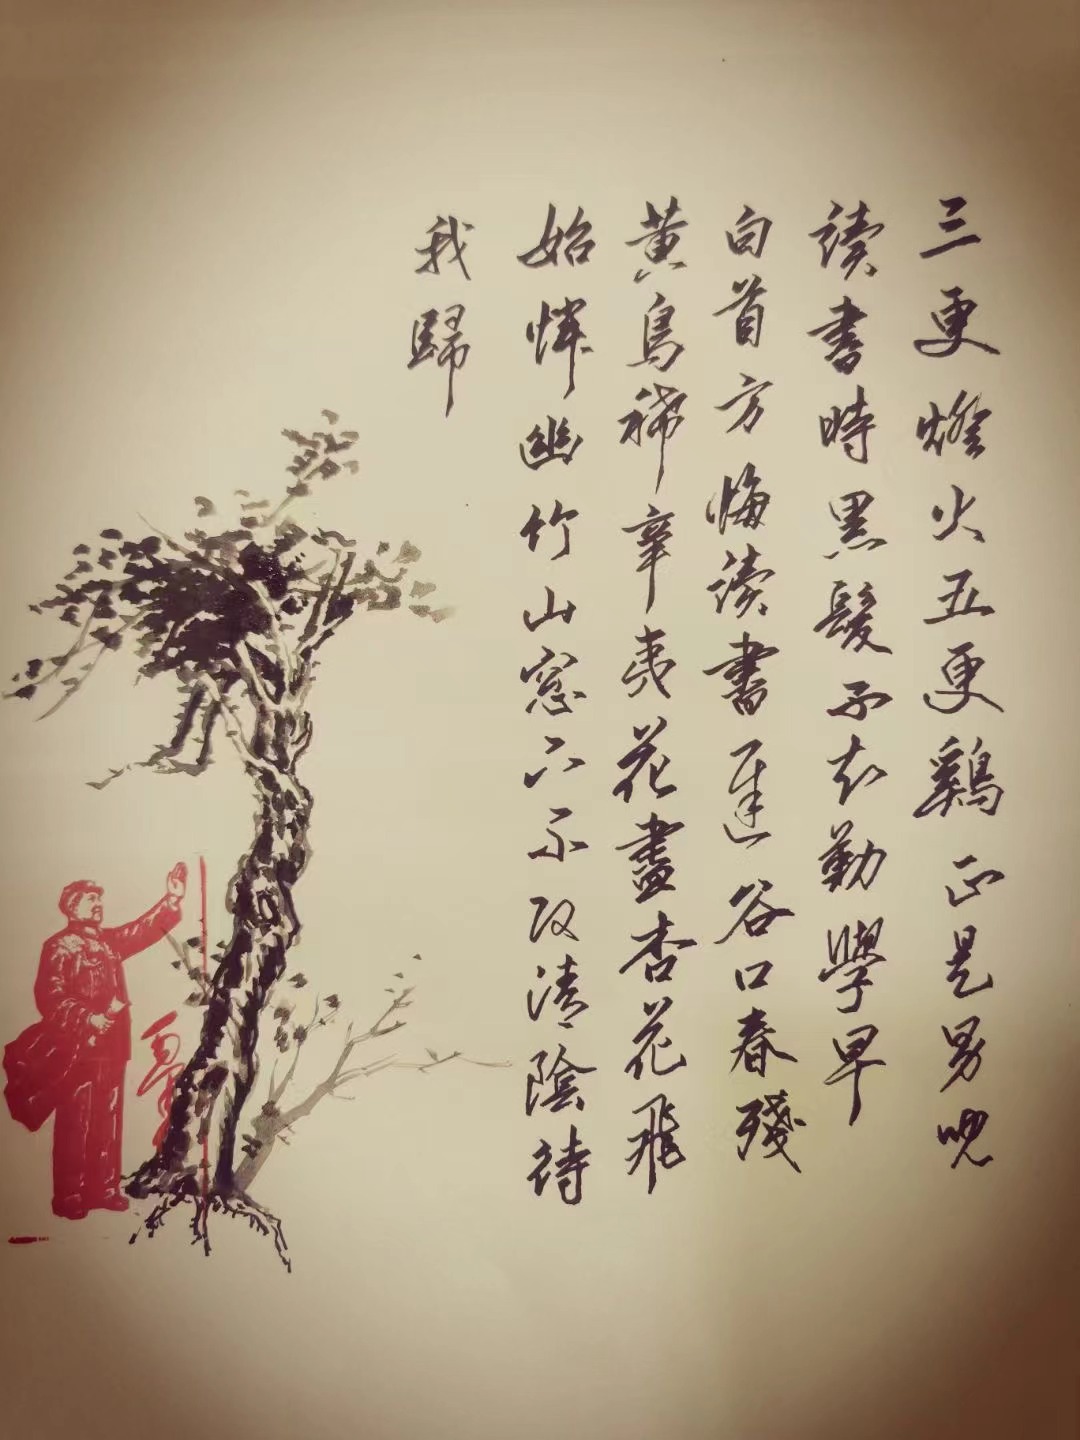 三更燈火五更鷄正是男兒
讀書時黑髮不知勤學早
白首方悔讀書遲谷口春殘
黄鳥稀辛夷花盡杏花飛
始憐幽竹山窓下不改清陰待
我歸